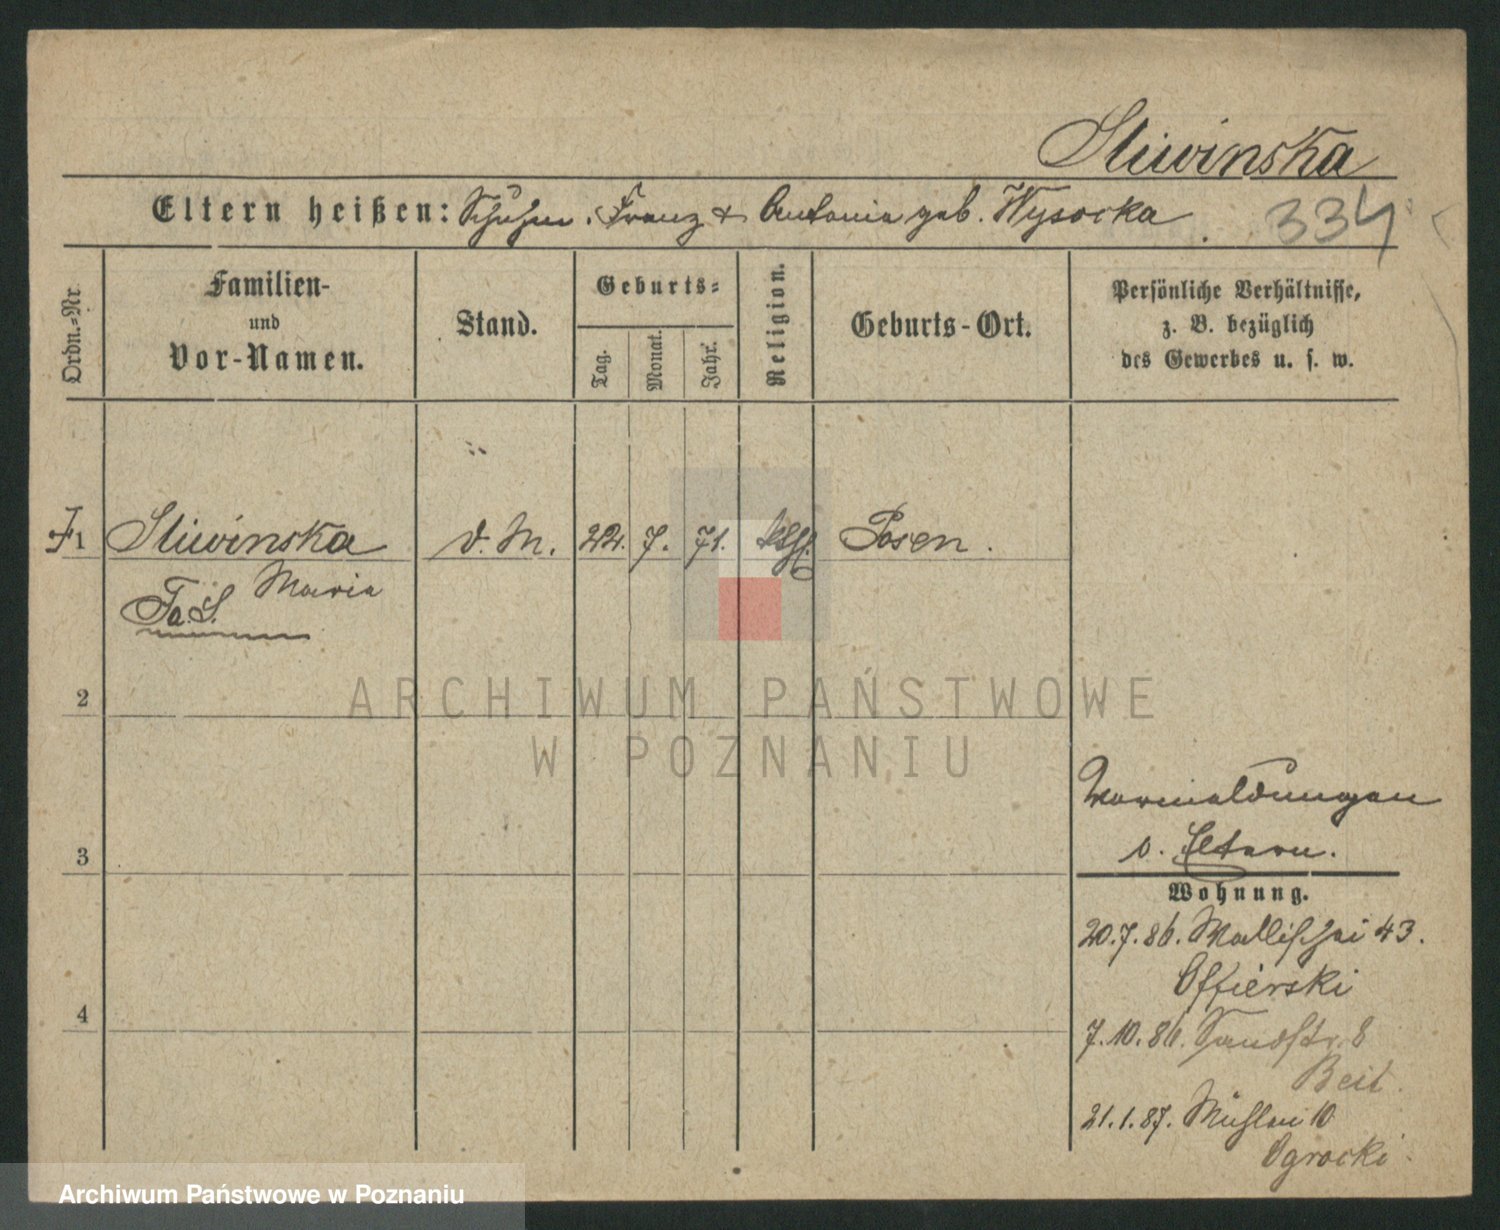 Sliwinska
Eltern heißen: Schuhm. Franz & Antonia geb. Wysocka
334
Ordn.-Nr.
Familien-
und
Vor-Namen.
Stand.
Geburts-
Tag.
Monat.
Jahr.
Religion.
Geburts-Ort.
Persönliche Verhältnisse,
z. B. bezüglich
des Gewerbes u. s. w.
1 Sliwinska d. M. 22. 7. 71. kath. Posen.
Maria
Fa. S.
2
ARCHIWUM PAŃSTWOWE
W POZNANIU
Vormeldungen
s. Eltern.
3
Wohnung.
20.7.86. Wallischei 43.
Offierski
4
7.10.86. Sandstr. 8
Beit.
21.1.87. Mühlen 10
Ogrocki.
Archiwum Państwowe w Poznaniu